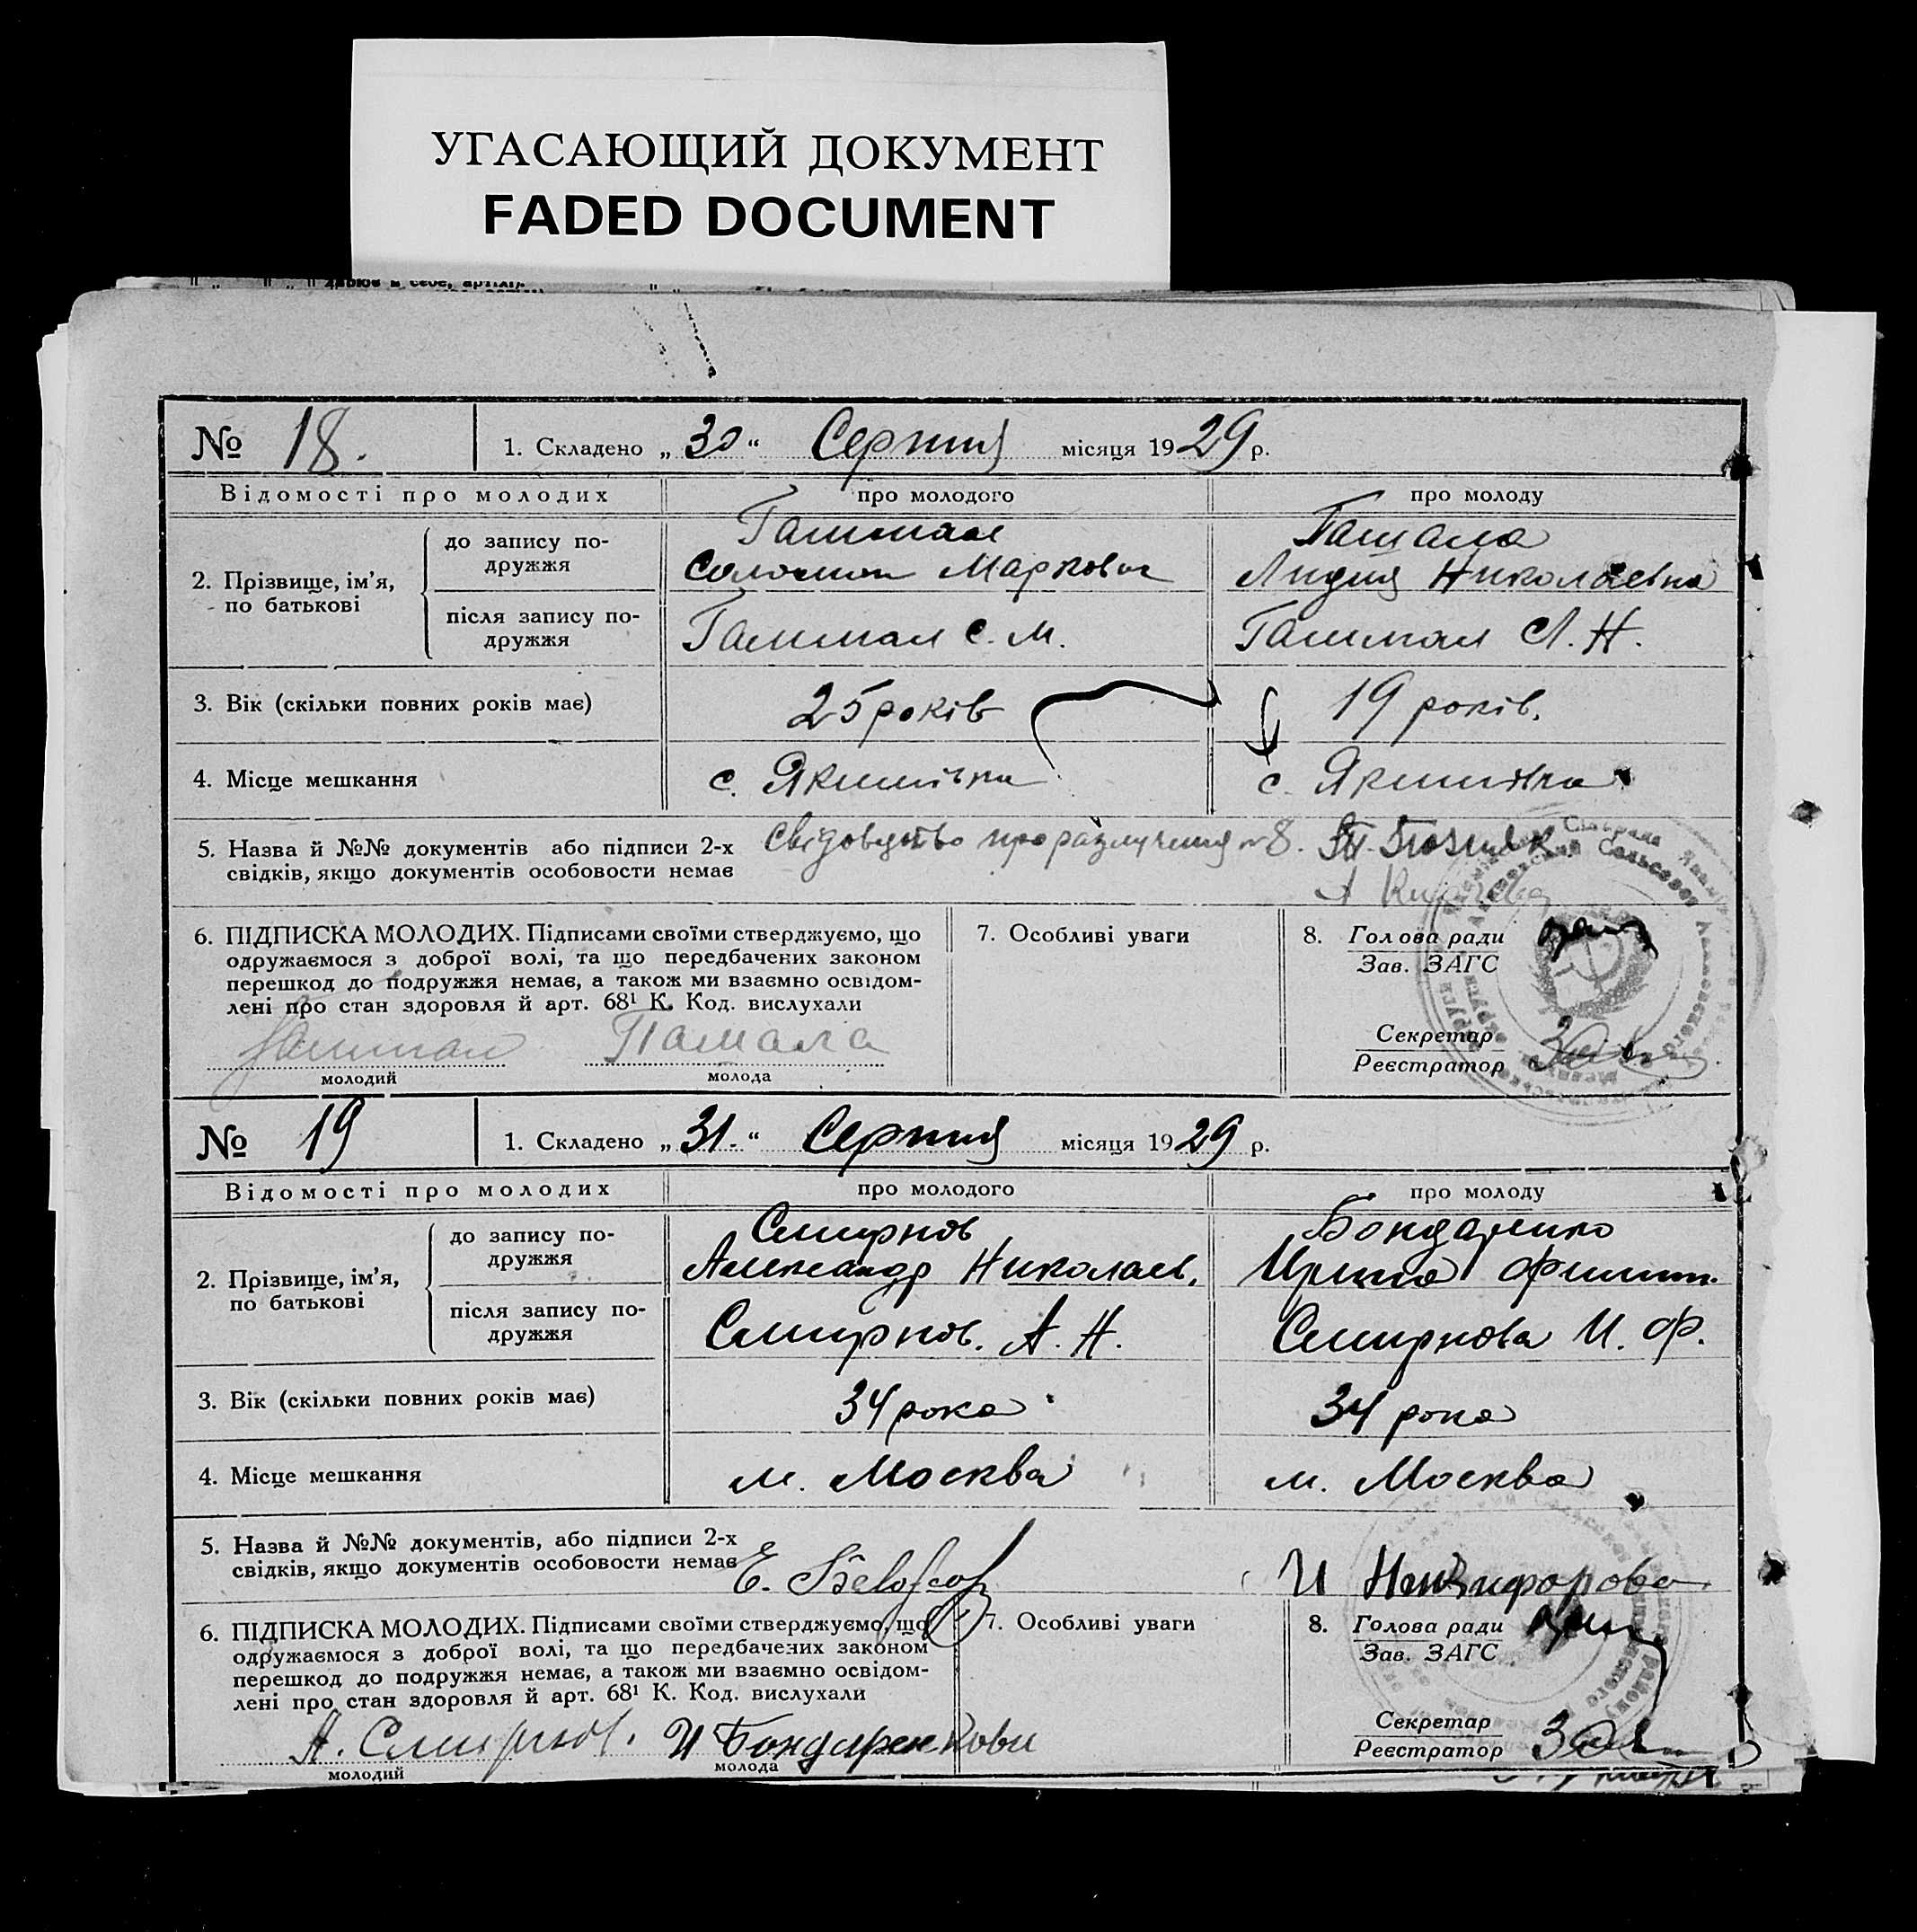 УГАСАЮЩИЙ ДОКУМЕНТ
FADED DOCUMENT
№ 18. 1. Складено „30“ Серпня місяця 1929 р.
Відомості про молодих про молодого про молоду
2. Прізвище, ім’я, по батькові
до запису подружжя
Соломон Маркович
Лидия Николаевна
після запису подружжя
С. М.
Л. Н.
3. Вік (скільки повних років має) 25 років 19 років.
4. Місце мешкання с. Якимівка с. Якимівка
5. Назва й №№ документів або підписи 2-х
свідків, якщо документів особовости немає
6. ПІДПИСКА МОЛОДИХ. Підписами своїми стверджуємо, що
одружаємося з доброї волі, та що передбачених законом
перешкод до подружжя немає, а також ми взаємно освідом-
лені про стан здоровля й арт. 68¹ К. Код. вислухали
молодий молода
7. Особливі уваги
8. Голова ради
Зав. ЗАГС
Секретар
Реєстратор
№ 19 1. Складено „31.“ Серпня місяця 1929 р.
Відомості про молодих про молодого про молоду
2. Прізвище, ім’я, по батькові
до запису подружжя
Смирнов
Александр Николаев.
Бондаренко
Ирина Филип.
після запису подружжя
Смирнов. А. Н.
Смирнова И. Ф.
3. Вік (скільки повних років має) 34 рока 34 рока
4. Місце мешкання м. Москва м. Москва
5. Назва й №№ документів, або підписи 2-х
свідків, якщо документів особовости немає
Е. И
6. ПІДПИСКА МОЛОДИХ. Підписами своїми стверджуємо, що
одружаємося з доброї волі, та що передбачених законом
перешкод до подружжя немає, а також ми взаємно освідом-
лені про стан здоровля й арт. 68¹ К. Код. вислухали
А. Смирнов. И Бондаренкова
молодий молода
7. Особливі уваги
8. Голова ради
Зав. ЗАГС
Секретар
Реєстратор